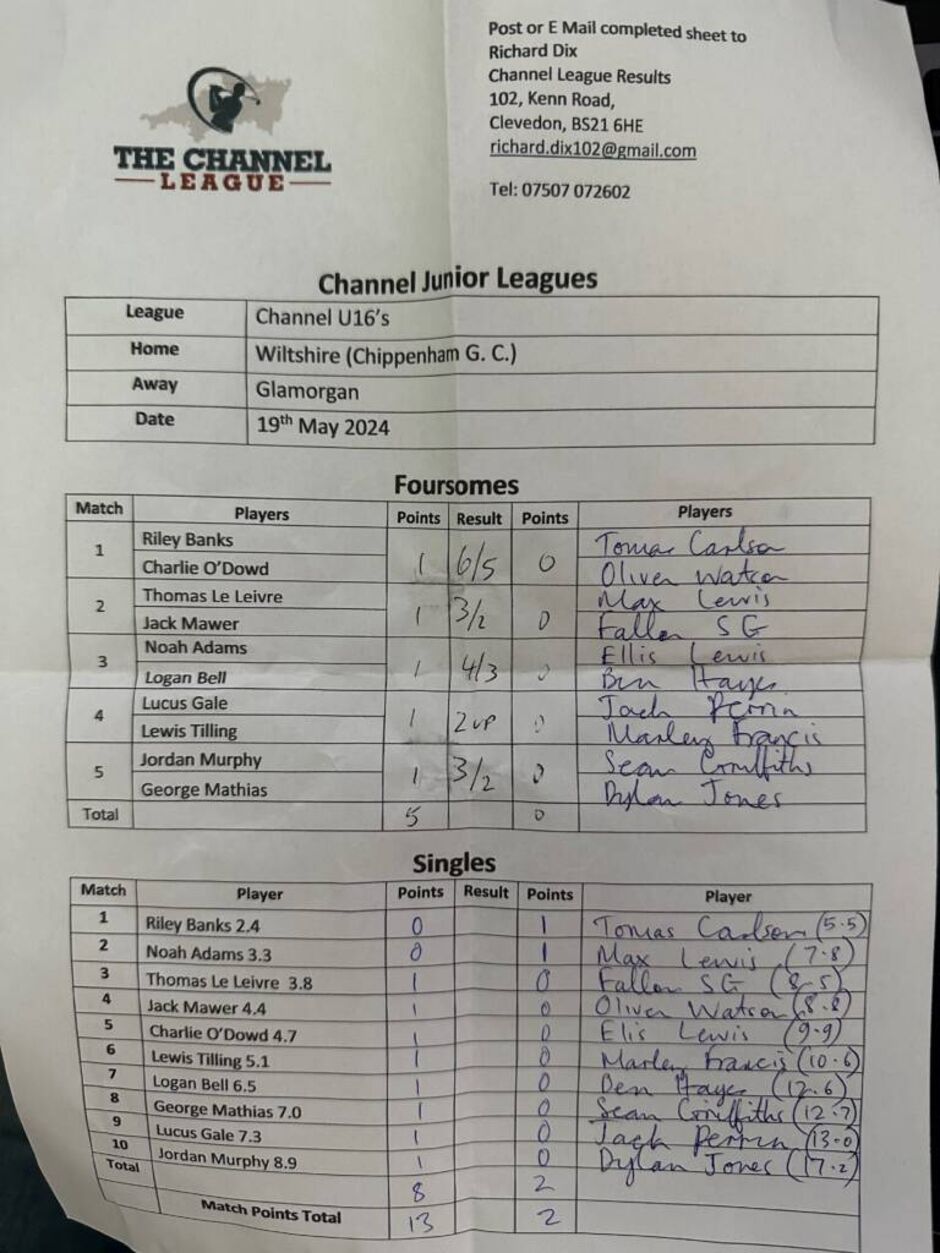 Post or E Mail completed sheet to
Richard Dix
Channel League Results
102, Kenn Road,
Clevedon, BS21 6HE
richard.dix102@gmail.com
Tel: 07507 072602
THE CHANNEL
LEAGUE
Channel Junior Leagues
League Channel U16's
Home Wiltshire (Chippenham G. C.)
Away Glamorgan
Date 19th May 2024
Foursomes
Match Players Points Result Points Players
1 Riley Banks 1 6/5 0 Tomas Carlson
Charlie O'Dowd Oliver Watson
2 Thomas Le Leivre 1 3/2 0 Max Lewis
Jack Mawer Fallon SG
3 Noah Adams 1 4/3 0 Ellis Lewis
Logan Bell Ben Hayes
4 Lucus Gale 1 2 UP 0 Jach Perrin
Lewis Tilling Marley Francis
5 Jordan Murphy 1 3/2 0 Sean Griffiths
George Mathias Dylan Jones
Total 5 0
Singles
Match Player Points Result Points Player
1 Riley Banks 2.4 0 1 Tomas Carlson (5.5)
2 Noah Adams 3.3 0 1 Max Lewis (7.8)
3 Thomas Le Leivre 3.8 1 0 Fallon SG (8.5)
4 Jack Mawer 4.4 1 0 Oliver Watson (8.8)
5 Charlie O'Dowd 4.7 1 0 Elis Lewis (9.9)
6 Lewis Tilling 5.1 1 0 Marley Francis (10.6)
7 Logan Bell 6.5 1 0 Ben Hayes (12.6)
8 George Mathias 7.0 1 0 Sean Griffiths (12.7)
9 Lucus Gale 7.3 1 0 Jach Perrin (13.0)
10 Jordan Murphy 8.9 1 0 Dylan Jones (17.2)
Total 8 2
Match Points Total 13 2